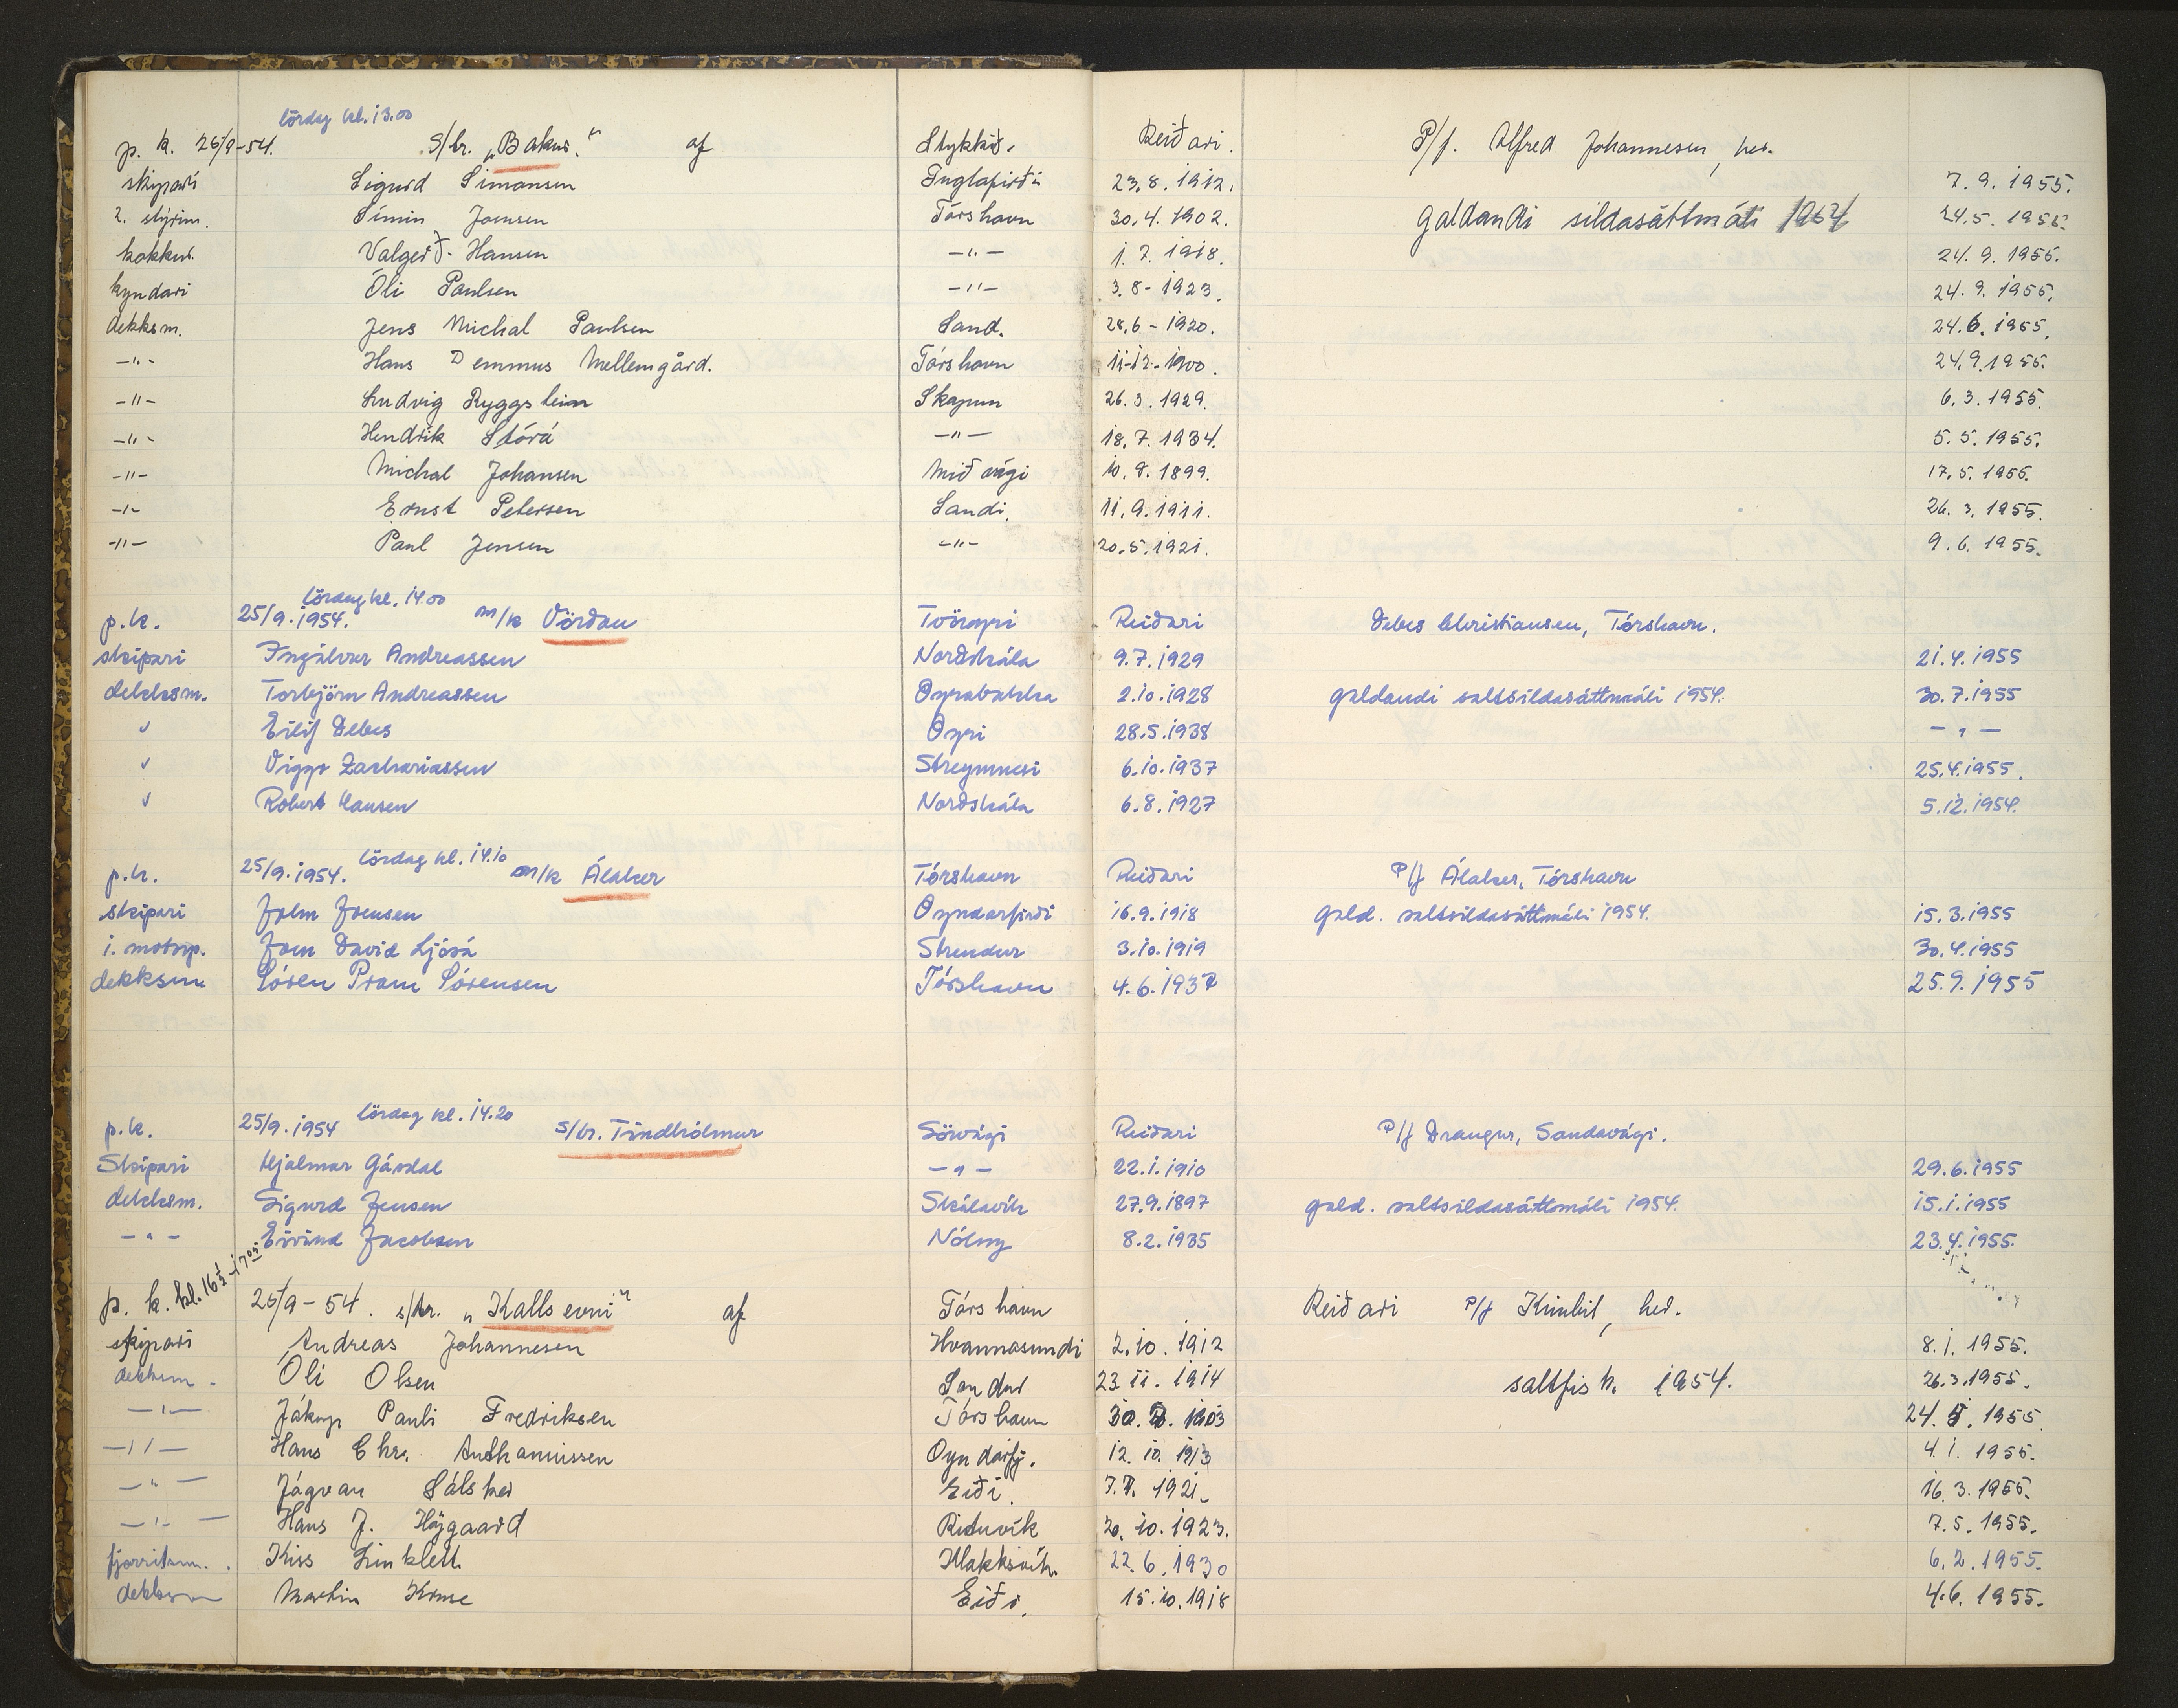 lördag kl. 13.00
p. k. 25/9-54. S/tr. „Bakur.“ af Stykkið. Reiðari. P/f. Alfred Johannesen, her.
skipari Sigurd Simonsen Fuglafirði 23.8.1912. 7.9.1955.
2. stýrim. Símin Joensen Tórshavn 30.4.1902. galdandi sildasáttmáli 1954 24.5.1955.
kokkur. Valgerð Hansen -"- 1.7.1918. 24.9.1955.
kyndari Óli Paulsen -"- 3.8-1923. 24.9.1955.
dekksm. Jens Michal Paulsen Sand. 28.6-1920. 24.6.1955.
-"- Hans Demmus Mellemgård. Tórshavn 11-12-1900. 24.9.1955.
-"- Ludvig Ryggstein Skapun 26.3.1929. 6.3.1955.
-"- Hendrik Stórá -"- 18.7.1934. 5.5.1955.
-"- Michal Johansen Miðvági 10.8.1899. 17.5.1955.
-"- Ernst Petersen Sandi. 11.9.1911. 26.3.1955.
-"- Paul Jensen -"- 20.5.1921. 9.6.1955.
lördag kl. 14.00
p.k. 25/9.1954. m/k Vörðan Tvöroyri Reiðari Debes Christiansen, Tórshavn.
skipari Ingálvur Andreassen Norðskála 9.7.1929 21.4.1955
dekksm. Torbjörn Andreassen Oyrabakka 2.10.1928 galdandi saltsildasáttmáli 1954. 30.7.1955
" Eilif Debes Oyri 28.5.1938 - " -
" Viggo Zachariassen Streymnesi 6.10.1937 25.4.1955.
" Robert Hansen Norðskála 6.8.1927 5.12.1954.
p.k. 25/9.1954. lördag kl. 14.10 m/k Álaker Tórshavn Reiðari P/f Álaker, Tórshavn
skipari John Joensen Oyndarfirði 16.9.1918 gald. saltsildasáttmáli 1954. 15.3.1955
1. motorp. Joen David Ljósá Strendur 3.10.1919 30.4.1955
dekksm. Sóren Pram Sórensen Tórshavn 4.6.1937 25.9.1955
p.k. 25/9.1954 lördag kl. 14.20 s/tr. Tindhólmur Sörvági Reiðari P/f Drangur, Sandavági.
Skipari Hjalmar Gárdal - " - 22.1.1910 29.6.1955
dekksm. Sigurd Jensen Skálavík 27.9.1897 gald. saltsildasáttmáli 1954. 15.1.1955
- " - Eivind Jacobsen Nólsoy 8.2.1935 23.4.1955.
p. k. kl. 16½-17⁰⁵ 25/9-54. s/tr. „Kallsevni“ af Tórshavn Reiðari P/f Kimbil, her.
skipari Andreas Johannesen Hvannasundi 2.10.1912 8.1.1955.
dekksm. Óli Olsen Sandur 23.11.1914 saltfisk. 1954. 26.3.1955.
-"- Jákup Pauli Fredriksen Tórshavn 30. 1903 24. 1955
-"- Hans Chr. Anthoniussen Oyndarfj. 12.10.1913 4.1.1955.
-"- Jógvan Sálsker Eiði. 7. 1921. 16.3.1955.
-"- Hans J. Højgaard Rituvík 20.10.1923. 7.5.1955.
fjórritsm. Kiss Linklett Klakksvík. 22.6.1930 6.2.1955.
dekksm Martin Kruse Eiði. 15.10.1918 4.6.1955.